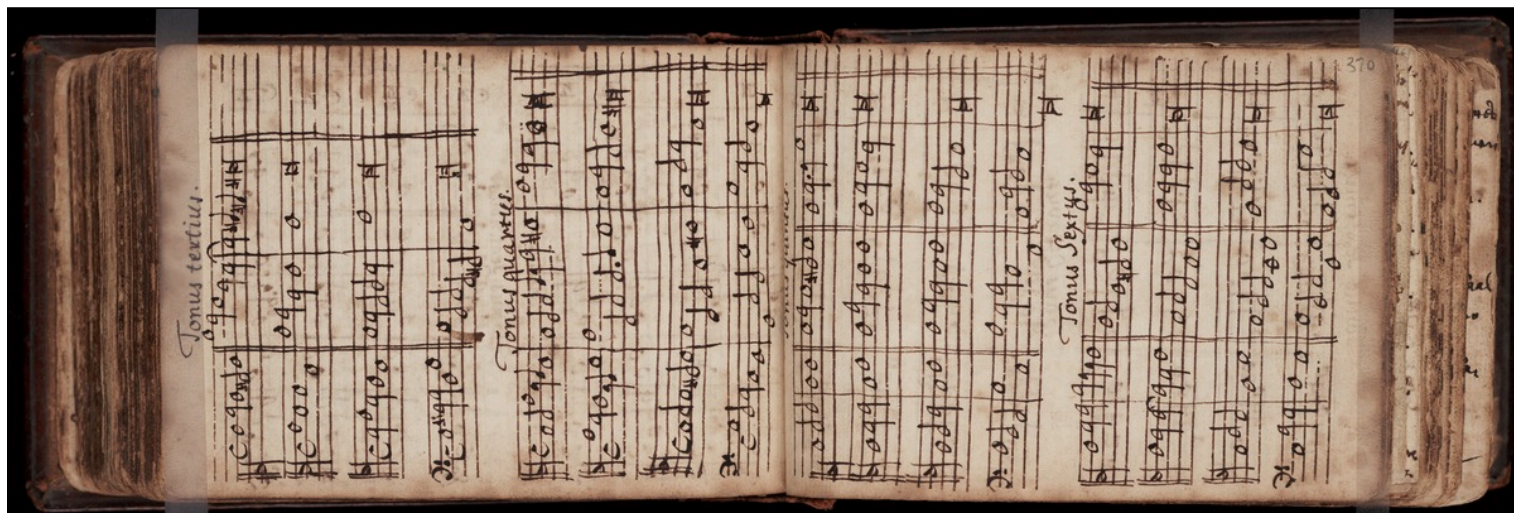 Tonus tertius.
Tonus quartus.
Tonus Sextus.
370